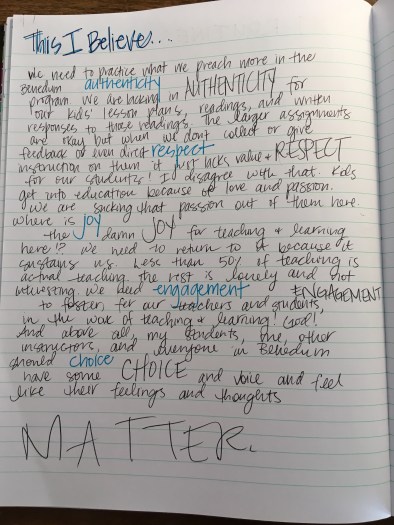 This I Believe...
We need to practice what we preach more in the
Benedum authenticity
program. We are lacking in AUTHENTICITY for
our kids' lesson plans, readings, and written
responses to those readings. The larger assignments
are okay but when we don't collect or give
feedback or even direct respect
instruction on them it just lacks value & RESPECT
for our students! I disagree with that. Kids
get into education because of love and passion.
We are sucking that passion out of them here.
Where is joy
the damn JOY for teaching & learning
here!? We need to return to it because it
sustains us. Less than 50% of teaching is
actual teaching. The rest is lonely and not
interesting. We need engagement ENGAGEMENT
to foster, for our teachers and students,
in the work of teaching & learning! God!
And above all, my students, me, other
instructors, and everyone in Benedum
should choice
have some CHOICE and voice and feel
like their feelings and thoughts
MATTER.